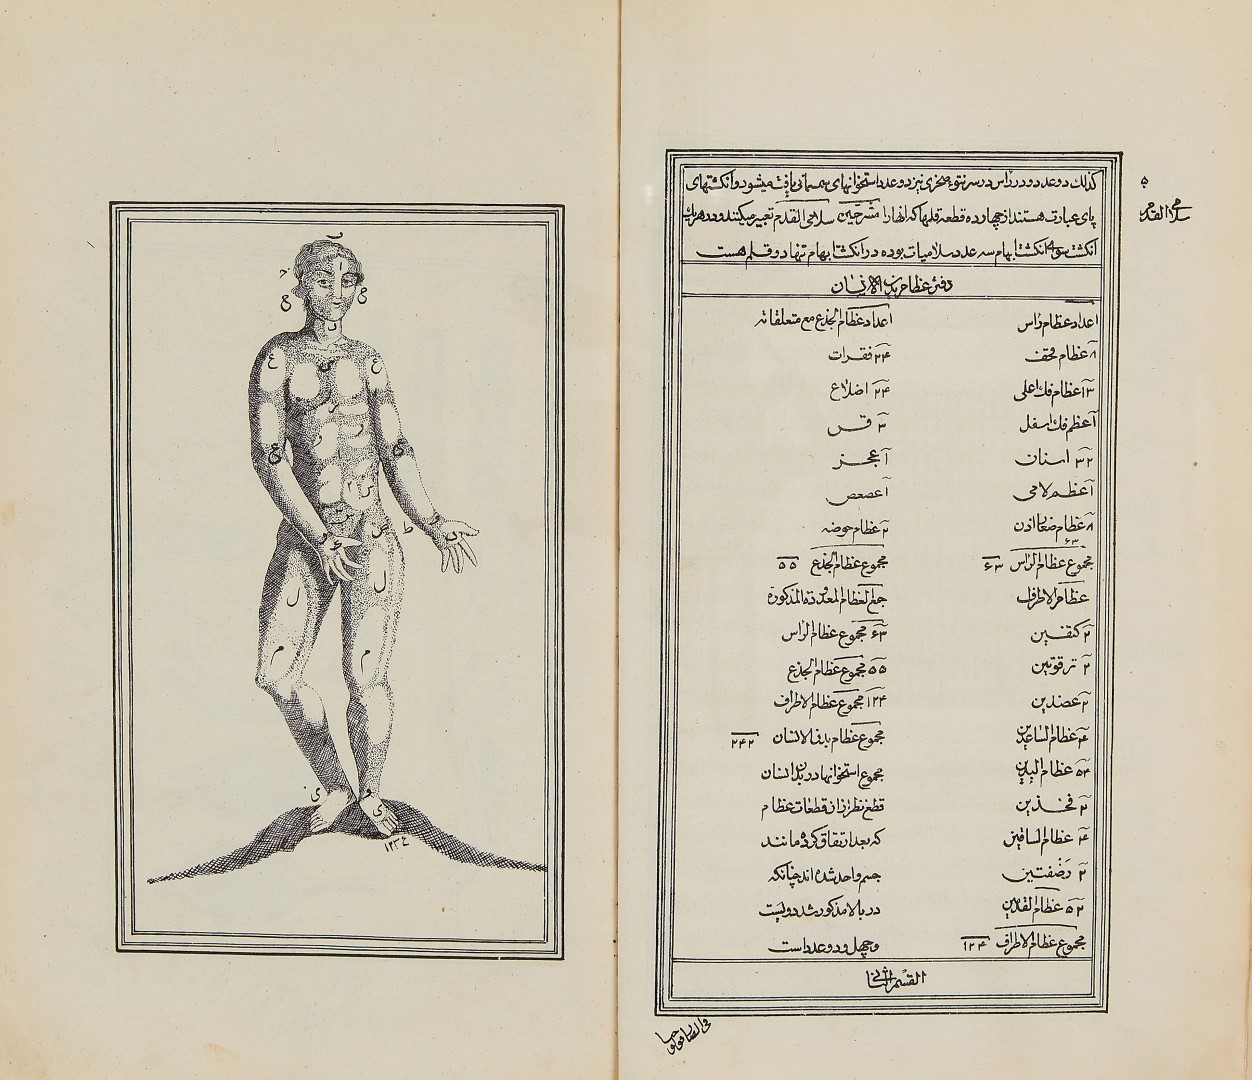 کذلك دو عدد در رأس در سر نتوء صخری نیز دو عدد استخوانهای سمسمانی یافت میشود و انکشتهای
پای عبارت هستند از چهارده قطعه قلمها که انها را مشرحین سلامی القدم تعبیر میکنند و در هر یك
انکشت سوای انکشت ابهام سه عدد سلامیات بوده در انکشت ابهام تنها دو قلم هست
سلامی القدم
دفتر عظام بدن الانسان
اعداد عظام رأس
اعداد عظام الجذع مع متعلقاته
۸ عظام قحف
۲۴ فقرات
۱۳ عظام فك اعلی
۲۴ اضلاع
۱ عظم فك اسفل
۳ قس
۳۲ اسنان
۱ عجز
۱ عظم لامی
۱ عصعص
۸ عظام اذن
۲ عظام حوضه
مجموع عظام الرأس ۶۳
مجموع عظام الجذع ۵۵
عظام الاطراف
جمع العظام المعدودة المذکورة
۲ کتفین
۶۳ مجموع عظام الرأس
۲ ترقوتین
۵۵ مجموع عظام الجذع
۲ عضدین
۱۲۴ مجموع عظام الاطراف
۴ عظام الساعدین
مجموع عظام بدن الانسان ۲۴۲
۵۴ عظام الیدین
مجموع استخوانها در بدن انسان
۲ فخذین
قطع نظر از ان قطعات عظام
۴ عظام الساقین
که بعد اتفاق کرده مانند
۲ رضفتین
جسم واحد شده اند چنانکه
۵۲ عظام القدمین
در بالا مذکور شد دویست
مجموع عظام الاطراف ۱۲۴
و چهل و دو عدد است
القسم الثانی